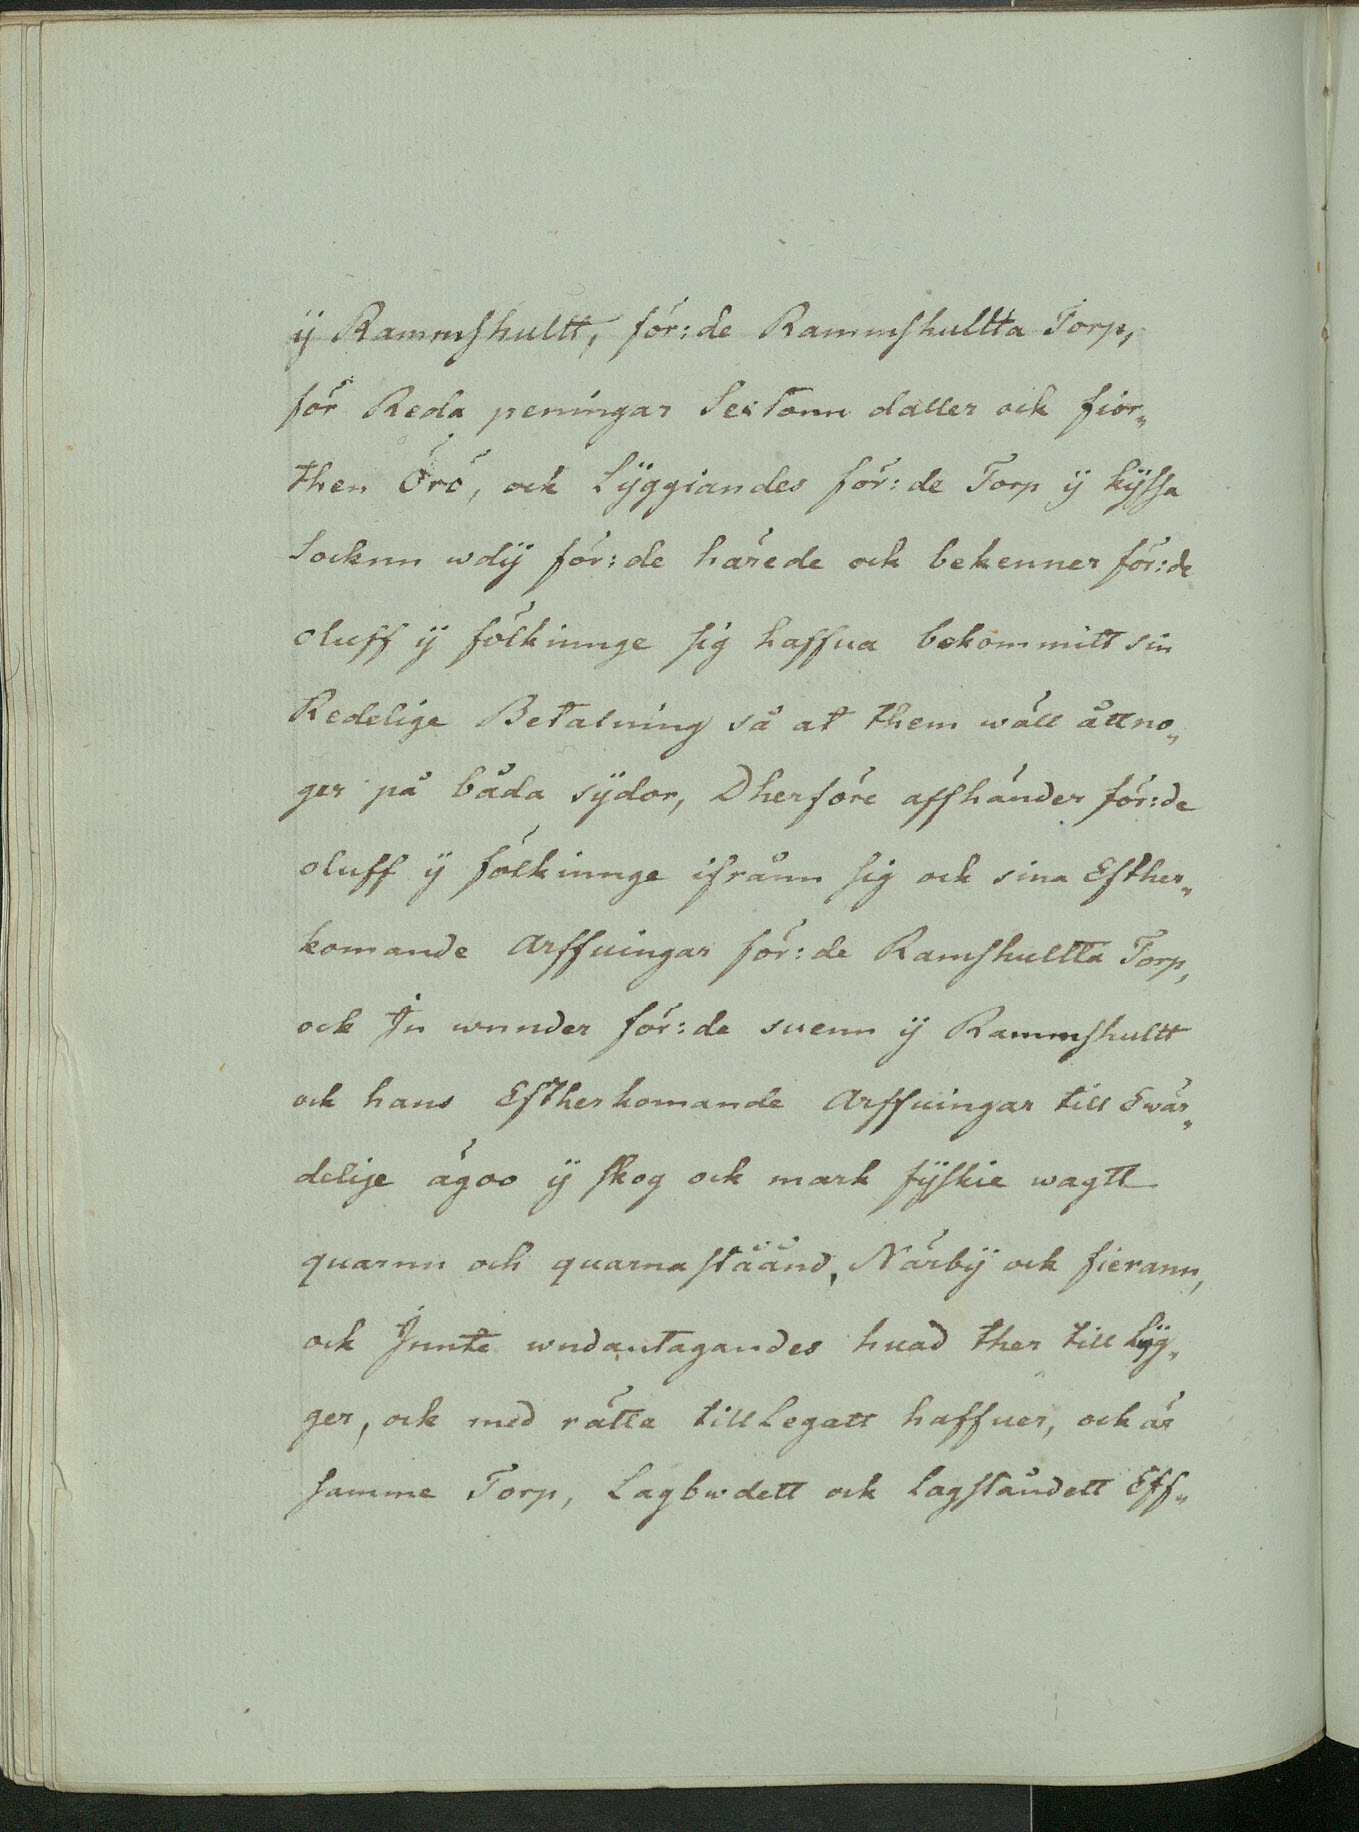 ÿ Rammshultt, för:de Rammshultta Torp,
för Reda peningar Sextonn daller ock fiör„
then Örö, ock Lÿggiandes för:de Torp ÿ kÿssa
Socknn wdÿ för:de härede ock bekenner för:de
oluff ÿ fölkinnge sig haffua bekommitt sin
Redelige Betalning så at them wäll åttnö„
ger på båda sÿdor, Dherföre affhänder för:de
oluff ÿ fölkinnge ifrånn sig ock sina Efther„
komande Arffuingar för:de Ramshultta Torp,
ock In wnnder för:de suenn ÿ Rammshultt
ock hans Eftherkomande Arffuingar till Ewär„
delige ägoo ÿ skog ock mark fÿskie wagtt
quarnn och quarnastäånd, Närbÿ ock fierann,
ock Innte wndantagandes huad ther till Lÿg„
ger, ock med rätta tillLegatt haffuer, ock är
samme Torp, Lagbwdett ock Lagståndett Eff„